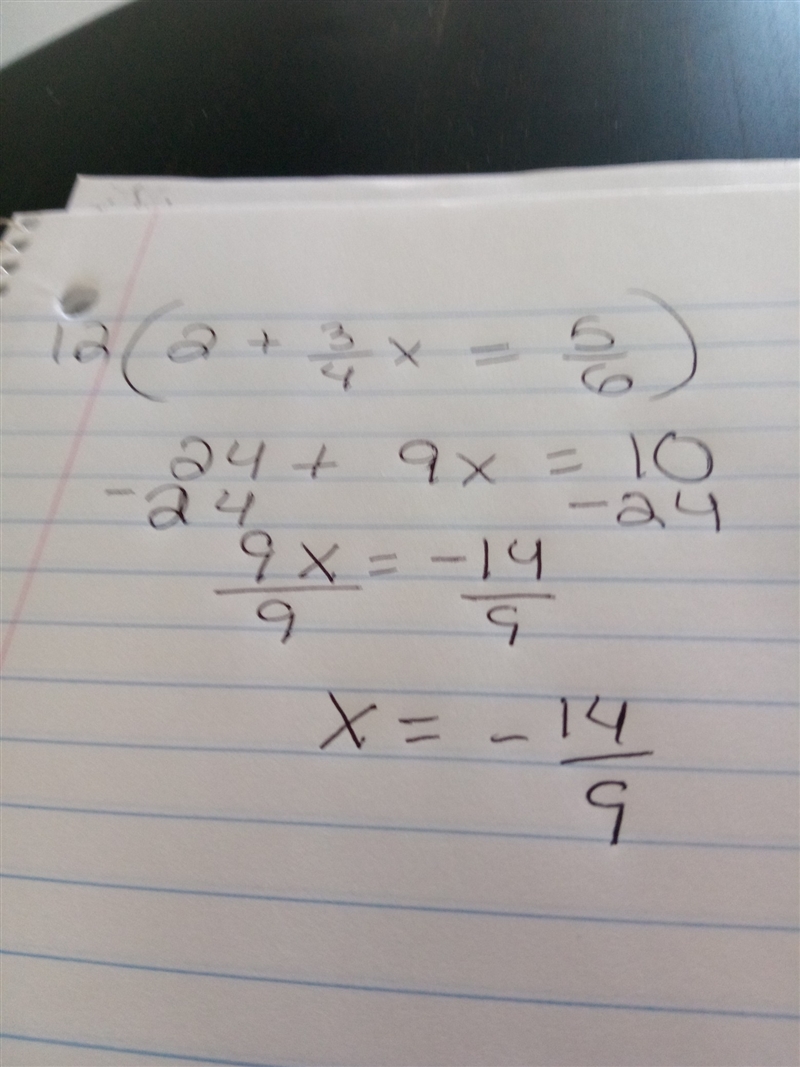 12(2 + 3/4 x = 5/6)
24 + 9x = 10
-24 -24
9x/9 = -14/9
x = -14/9